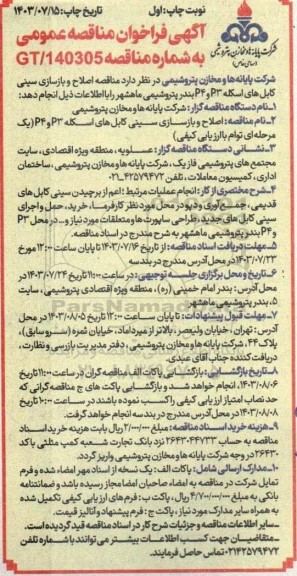 نوبت چاپ: اول
تاریخ چاپ: ۱۴۰۳/۰۷/۱۵
شرکت پایانه‌ها و مخازن پتروشیمی
(سهامی خاص)
آگهی فراخوان مناقصه عمومی
به شماره مناقصه GT/140305
شرکت پایانه ها و مخازن پتروشیمی در نظر دارد مناقصه اصلاح و بازسازی سینی
کابل های اسکله P3 و P4 بندر پتروشیمی ماهشهر را با اطلاعات ذیل انجام دهد:
۱- نام دستگاه مناقصه گزار: شرکت پایانه ها و مخازن پتروشیمی
۲- نام مناقصه: اصلاح و بازسازی سینی کابل های اسکله P3 و P4 (یک
مرحله ای توام با ارزیابی کیفی)
۳- نشانی دستگاه مناقصه گزار: عسلویه، منطقه ویژه اقتصادی، سایت
مجتمع های پتروشیمی فاز یک، شرکت پایانه ها و مخازن پتروشیمی، ساختمان
اداری، کمیسیون معاملات، تلفن ۴۲۵۷۹۴۷۲-۰۲۱
۴- شرح مختصری از کار: انجام عملیات مرتبط؛ اعم از برچیدن سینی کابل های
قدیمی، جمع آوری و دپو در محل مورد نظر کارفرما، خرید، حمل و اجرای
سینی کابل های جدید، طراحی ساپورت ها و متعلقات مورد نیاز و... در محل P3
و P4 بندر پتروشیمی ماهشهر به شرح مندرج در اسناد مناقصه.
۵- مهلت دریافت اسناد مناقصه: از تاریخ ۱۴۰۳/۰۷/۱۶ تا پایان ساعت ۱۲:۰۰ مورخ
۱۴۰۳/۰۷/۲۳ در محل آدرس مندرج در بند سه
۶- تاریخ و محل برگزاری جلسه توجیهی: در ساعت ۱۱:۰۰ تاریخ ۱۴۰۳/۰۷/۲۴ در
محل آدرس: بندر امام خمینی (ره)، منطقه ویژه اقتصادی پتروشیمی، سایت
۵، بندر پتروشیمی ماهشهر
۷- مهلت قبول پیشنهادات: تا پایان ساعت ۱۲:۰۰ تاریخ ۱۴۰۳/۰۸/۰۵ در محل
آدرس: تهران، خیابان ولیعصر، بالاتر از میرداماد، خیابان ثمره (سرو سابق)،
پلاک ۴۴، شرکت پایانه ها و مخازن پتروشیمی، دفتر مدیریت بازرسی و نظارت،
دریافت کننده جناب آقای عبدی.
۸- تاریخ بازگشایی: بازگشایی پاکات الف مناقصه گران در ساعت ۱۰:۰۰ تاریخ
۱۴۰۳/۰۸/۰۶ انجام خواهد شد و بازگشایی پاکت های ج مناقصه گرانی که
حد نصاب امتیاز ارزیابی کیفی را کسب نموده باشند در ساعت ۱۰:۰۰ تاریخ
۱۴۰۳/۰۸/۰۸ در محل آدرس مندرج در بند سه انجام خواهد گرفت.
۹- هزینه خرید اسناد مناقصه: مبلغ ۲/۰۰۰/۰۰۰ ریال بابت هزینه خرید اسناد
مناقصه به حساب ۲۶۴۳۰۴۴۷۳۳ نزد بانک تجارت شعبه کمپ مثلثی با کد
۲۶۴۳۰ در وجه شرکت پایانه ها و مخازن پتروشیمی واریز گردد.
۱۰- مدارک ارسالی شامل: پاکات الف: یک نسخه از اسناد مهر امضاء شده و فرم
تمایل شرکت در مناقصه به امضاء صاحبان امضا مجاز رسیده باشد و ضمانتنامه
بانکی به مبلغ ۴/۷۰۰/۰۰۰/۰۰۰ ریال، پاکت ب: فرم های ارزیابی کیفی تکمیل شده
به همراه سایر مدارک مورد نیاز، پاکت ج: فرم پیشنهاد و آنالیز قیمت.
- سایر اطلاعات مناقصه و جزئیات شرح کار در اسناد مناقصه قید گردیده است.
- متقاضیان جهت کسب اطلاعات بیشتر می توانند با شماره تلفن
۰۲۱۴۲۵۷۹۴۷۲ تماس حاصل فرمایند.